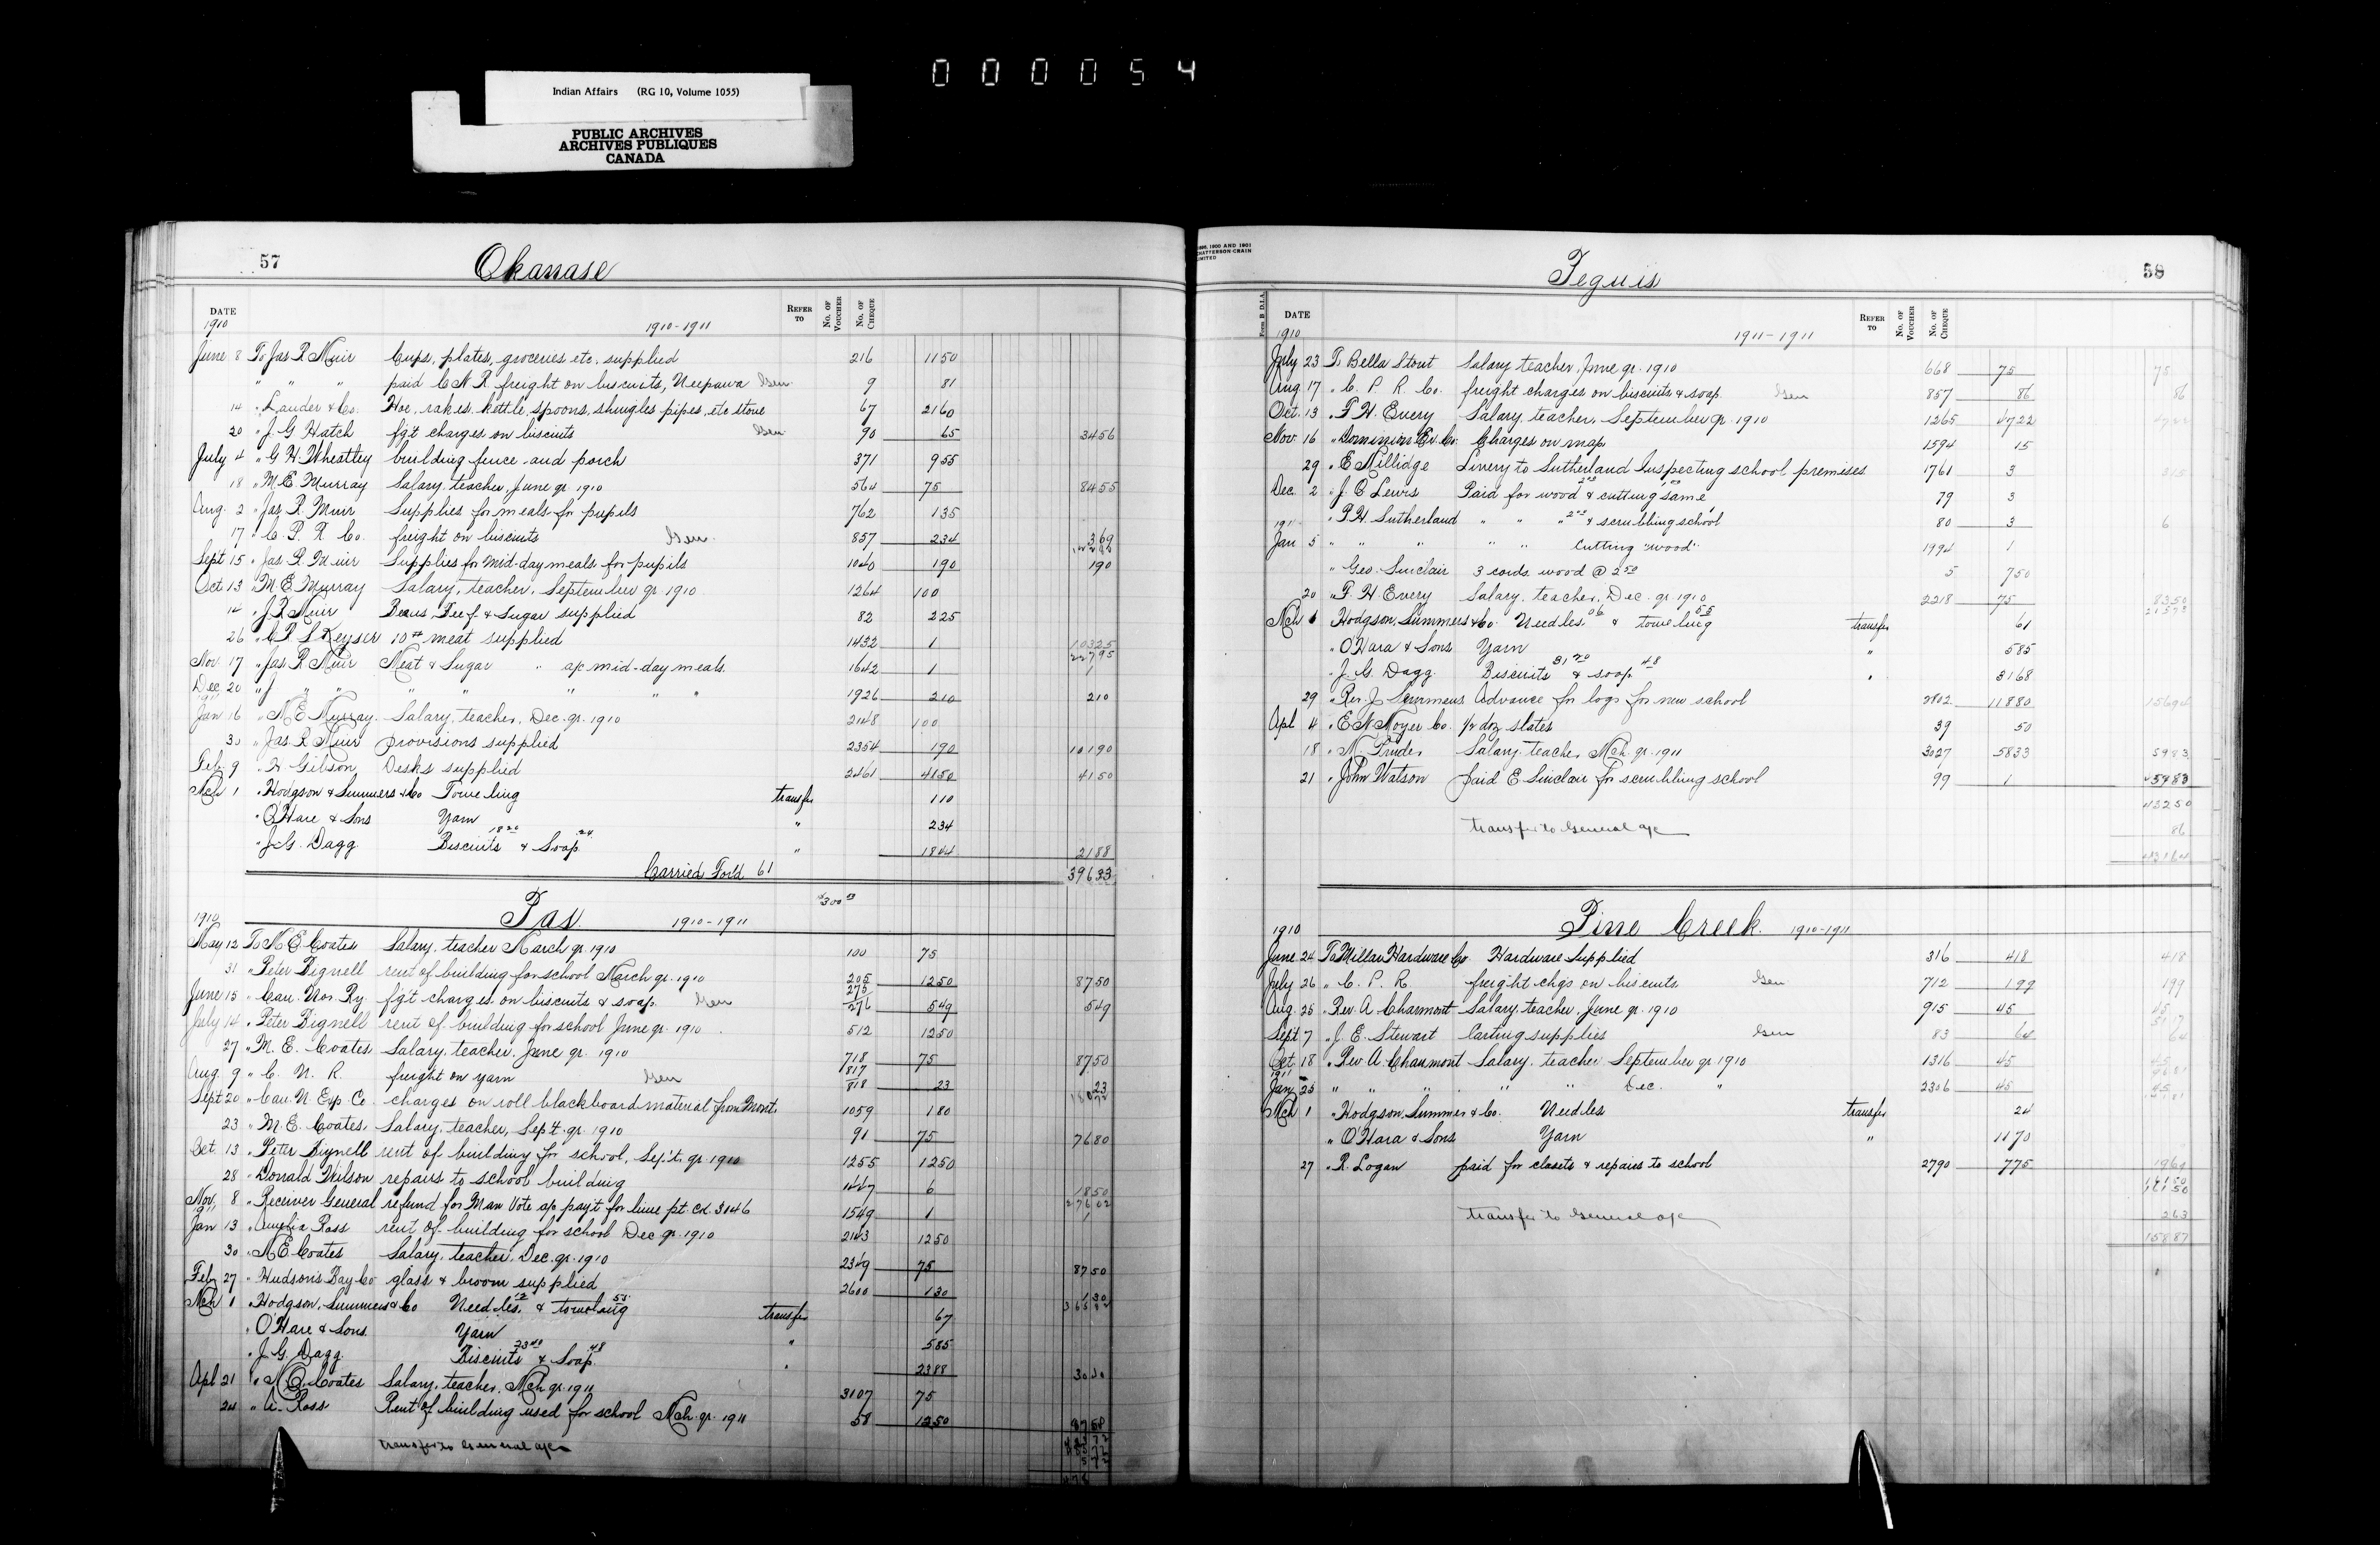 000054
Indian Affairs (RG 10, Volume 1055)
PUBLIC ARCHIVES
ARCHIVES PUBLIQUES
CANADA
57 Okanase
DATE REFER TO No. OF VOUCHER No. OF CHEQUE
1910 1910-1911
June 8 To Jas R Muir Cups, plates, groceries etc. supplied 216 1150
" " " paid C N R freight on biscuits, Neepawa Gen 9 81
14 " Lauder & Co. Hoe, rakes, kettle, spoons, shingles pipes, etc stove 67 2160
20 " J. G Hatch fg't charges on biscuits Gen 90 65 3456
July 4 " G H Wheatley building fence and porch 371 955
18 " M E. Murray Salary, teacher, June qr. 1910 564 75 8455
Aug. 2 " Jas R. Muir Supplies for meals for pupils 762 135
17 " C. P. R. Co. freight on biscuits Gen 857 234 369
Sept 15 " Jas R. Muir Supplies for mid-day meals for pupils 1040 190 190
Oct 13 " M. E Murray Salary, teacher, September qr. 1910 1264 100
14 " J R Muir Beans Beef & Sugar supplied 82 225
26 " Keyser 10# meat supplied 1432 1 10325
Nov. 17 " Jas R Muir Meat & Sugar " a/c mid-day meals 1642 1 1
Dec 20 " J " " " " " " " 1926 210 210
1911
Jan 16 " M E Murray Salary, teacher, Dec. qr. 1910 2148 100
30 " Jas R Muir provisions supplied 2354 190 10190
Feb 9 " H Gibson Desks supplied 2461 4150 4150
Mch 1 " Hodgson & Summers & Co Toweling transfer 110
" O'Hare & Sons Yarn " 234
" J. G. Dagg Biscuits 18 20 & Soap 24 " 1844 2188
Carried Ford 61 39633
Pas 1910-1911
1910
May 12 To M E Coates Salary, teacher March qr. 1910 100 75
31 " Peter Bignell rent of building for school March qr. 1910 205 1250 8750
June 15 " Can. Nor. Ry fg't charges on biscuits & soap. Gen 275 276 549 549
July 14 " Peter Bignell rent of building for school June qr. 1910 512 1250
27 " M. E. Coates Salary, teacher, June qr. 1910 718 75 8750
Aug. 9 " C. N. R. freight on yarn Gen 817 818 23 23
Sept 20 " Can. N. Exp. Co charges on roll blackboard material from Mont. 1059 180
23 " M. E. Coates Salary, teacher, Sept. qr. 1910 91 75 7680
Oct. 13 " Peter Bignell rent of building for school, Sept. qr. 1910 1255 1250
28 " Donald Wilson repairs to school building 1447 6 1850
Nov. 8 " Receiver General refund for Man Vote a/c pay't for lime pt. ck. 3046 1549 1
1911
Jan 13 " Amelia Ross rent of building for school Dec qr. 1910 2143 1250
30 " M E Coates Salary, teacher, Dec. qr. 1910 2349 75 8750
Feb 27 " Hudson's Bay Co glass & broom supplied 2600 130 130
Mch 1 " Hodgson, Summers & Co Needles 12 & toweling 55 transfer 67
" O'Hare & Sons. Yarn " 585
" J. G. Dagg. Biscuits 23 40 & Soap 48 " 2388
Apl 21 " M E. Coates Salary, teacher, Mch qr. 1911 3107 75
24 " A. Ross Rent of building used for school Mch. qr. 1911 58 1250
transfer to General a/c
Peguis 58
Form B D.I.A. DATE REFER TO No. OF VOUCHER No. OF CHEQUE
1910 1911-1911
July 23 To Bella Stout Salary teacher, June qr. 1910 668 75 75
Aug 17 " C. P. R. Co. freight charges on biscuits & soap. Gen 857 86 86
Oct. 13 " F. H. Every Salary, teacher, September qr. 1910 1265 4722
Nov. 16 " Dominion Ex. Co. Charges on map 1594 15
29 " E Millidge Livery to Sutherland Inspecting school premises 1761 3
Dec. 2 " J. C Lewis Paid for wood & cutting same 79 3
" P. H. Sutherland " " " & scrubbing school 80 3 6
1911
Jan 5 " " " " " Cutting "wood" 1994 1
" Geo. Sinclair 3 cords wood @ 250 5 750
20 " F. H Every Salary, teacher, Dec. qr. 1910 2218 75 8350
Mch 1 Hodgson, Summers & Co. Needles 06 & toweling 55 transfer 61
" O'Hara & Sons Yarn " 585
" J. G. Dagg. Biscuits 31 20 & soap 48 " 3168
29 " Rev J. Advance for logs for new school 2802 11880 15694
Apl 4 " E N Moyer Co. 1/2 doz slates 39 50
18 " M. Pruden Salary, teacher, Mch. qr. 1911 3027 5833 5983
21 " John Watson paid E. Sinclair for scrubbing school 99 1
transfer to General a/c 86
Pine Creek 1910-1911
1910
June 24 To Millar Hardware Co. Hardware Supplied 316 418 418
July 26 " C. P. R. freight chgs on biscuits Gen 712 199 199
Aug. 25 " Rev. A Charmont Salary, teacher, June qr. 1910 915 45 45
Sept 7 " J. E. Stewart Carting supplies Gen 83 64 64
Oct. 18 " Rev A. Chaumont Salary, teacher September qr 1910 1316 45 45
1911
Jan. 25 " " " " " Dec. " 2306 45 45
Mch 1 " Hodgson, Summer & Co. Needles transfer 24
" O'Hara & Sons Yarn " 1170
27 " R. Logan paid for closets & repairs to school 2790 775 1969
transfer to General a/c 263
15887